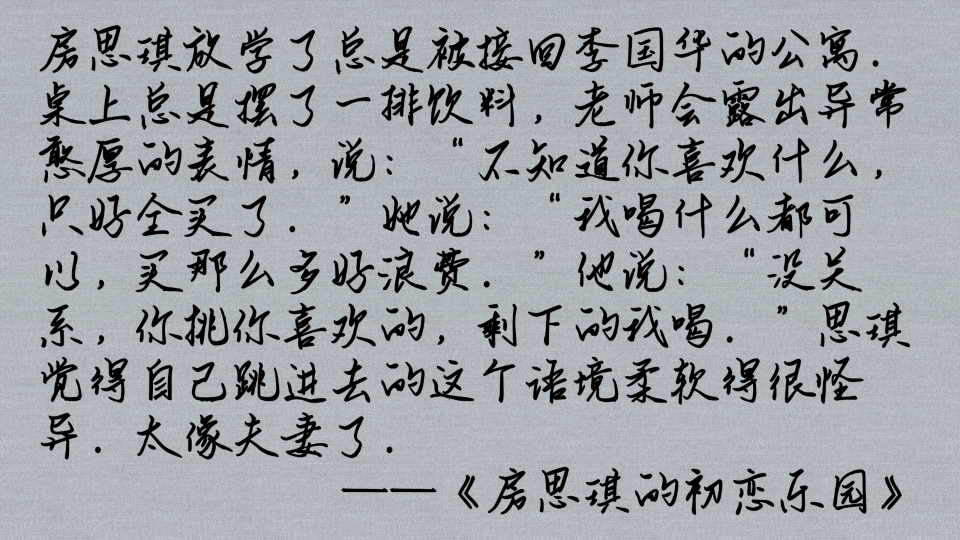 房思琪放学了总是被接回李国华的公寓.
桌上总是摆了一排饮料,老师会露出异常
憨厚的表情,说:“不知道你喜欢什么,
只好全买了.”她说:“我喝什么都可
以,买那么多好浪费.”他说:“没关
系,你挑你喜欢的,剩下的我喝.”思琪
觉得自己跳进去的这个语境柔软得很怪
异.太像夫妻了.
——《房思琪的初恋乐园》